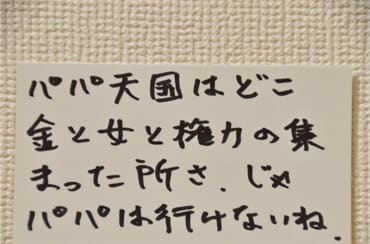 パパ天国はどこ
金と女と権力の集
まった所さ、じゃ
パパは行けないね.